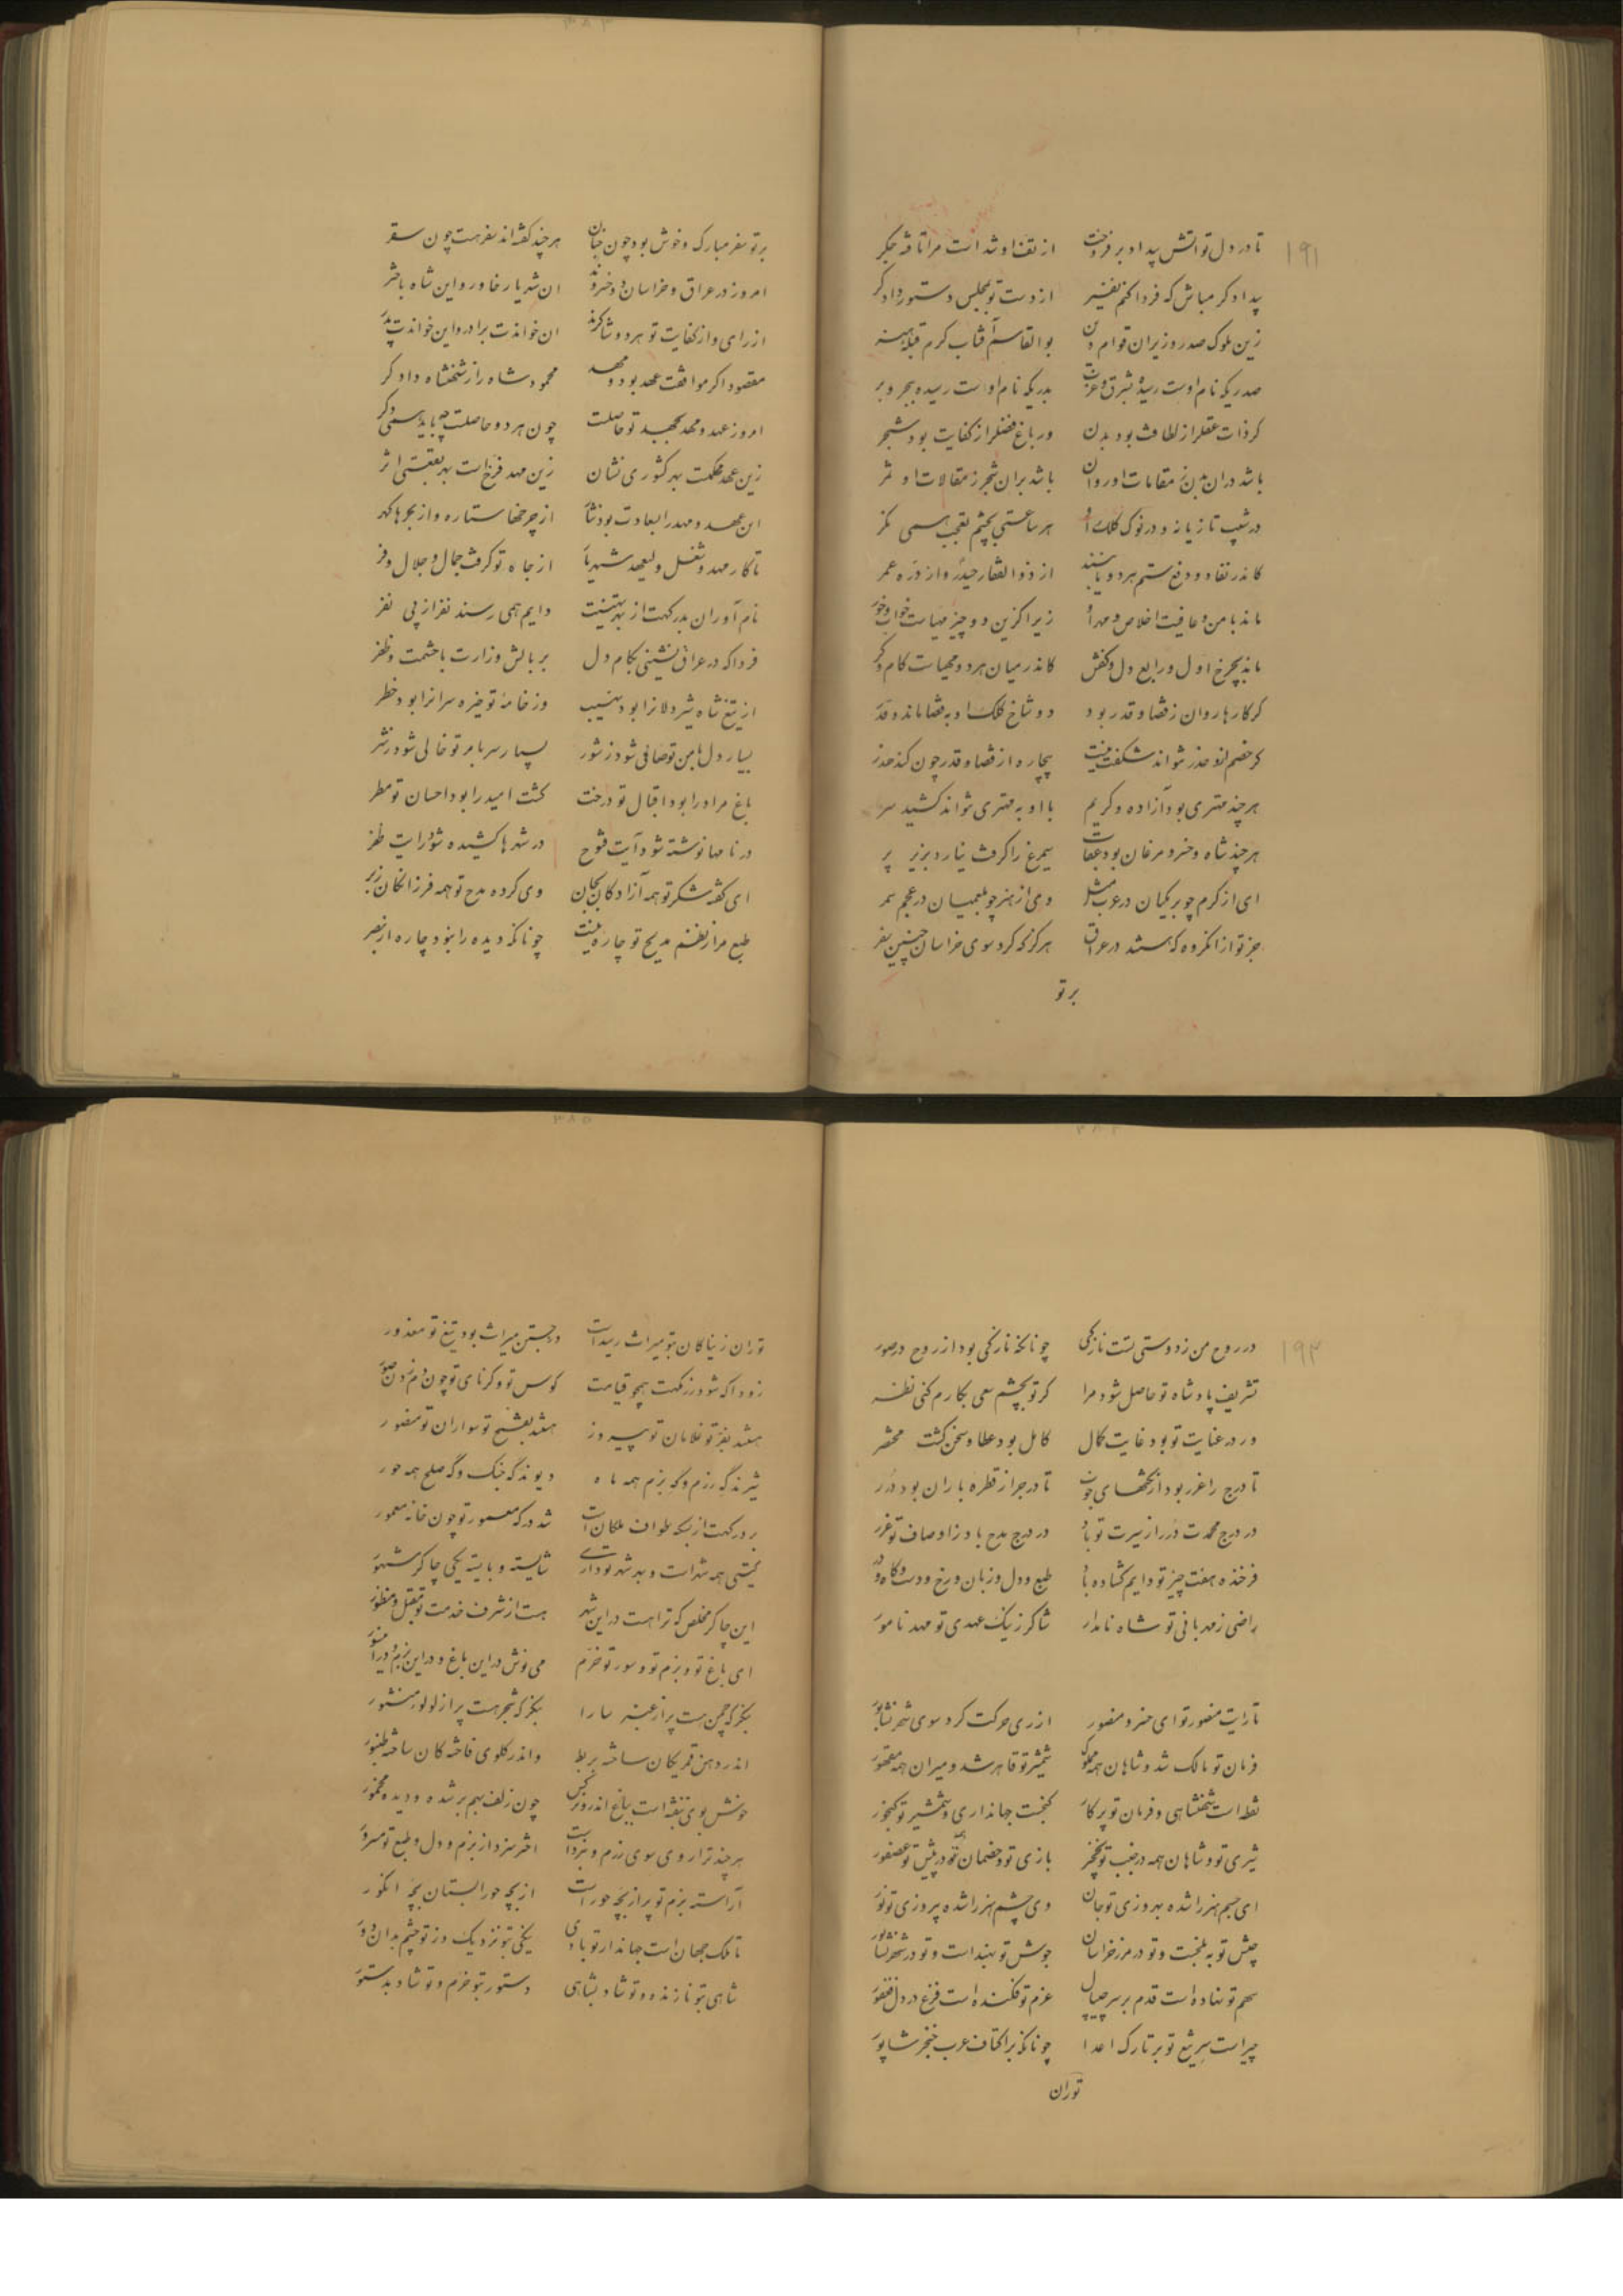 ۱۹۱
تا در دل تو اتش پیداد بر فروخت از تف او شد است مرا تافته جکر
پیدادکر مباش که فردا کنم نفیر از دست تو بمجلس دستور دادکر
زین ملوک صدر وزیران قوام دین بوالقاسم آفتاب کرم قبله هنر
صدریکه نام اوست رسیده بشرق و غرب بدریکه نام اوست رسیده ببحر و بر
کر ذات عقل از لطافت بود بدن ور باغ فضل از کفایت بود شجر
باشد در ان بدن ز مقامات او روان باشد بر ان شجر ز مقالات او ثمر
در شیب تازیانه و در نوک کلک او هر ساعتی بچشم تعجب همی نکر
کاندر نفاد و دفع ستم هر دو نایبند از ذوالفقار حیدر و از دره عمر
ماند بامن و عافیت اخلاص و مهر او زیرا کزین دو چیز مهیاست خواب و خور
ماند بچرخ اول و رابع دل و کفش کاندر میان هر دو مهیاست کام و کر
کر کارها روان ز قضا و قدر بود دو شاخ کلک او بقضا ماند و قدر
کر خصم ازو حذر نتواند شکفت نیست بیچاره از قضا و قدر چون کند حذر
هر چند مهتری بود آزاده و کریم با او به مهتری نتواند کشید سر
هر چند شاه و خسرو مرغان بود عقاب سیمرغ را کرفت نیارد بزیر پر
ای از کرم چو برمکیان در عرب مثل وی از هنر چو بلعمیان در عجم سمر
جز تو از انکروه که هستند در عراق هرکز که کرد سوی خراسان چنین سفر
بر تو
بر تو سفر مبارک و خوش بود چون جنان هر چند کفته اند سفر هست چون سقر
امروز در عراق و خراسان دو خسروند ان شهریار خاور و این شاه باختر
از رای و از کفایت تو هر دو شاکرند ان خواندت برادر و این خواندت پدر
مقصود اکر موافقت عهد بود و مهد محمود شاه را ز شهنشاه دادکر
امروز عهد و مهد بجهد تو حاصلست چون هر دو حاصلست چه باید همی دکر
زین عهد محکمست بهر کشوری نشان زین مهد فرخ است بهر بقعتی اثر
این عهد و مهد را بسعادت بود نثار از چرخها ستاره و از بحرها کهر
تا کار مهد و شغل ولیعهد شهریار از جاه تو کرفت جمال و جلال و فر
نام آوران بدرکهت از بهر تهنیت دایم همی رسند نفر از پی نفر
فردا که در عراق نشینی بکام دل بر بالش وزارت با حشمت و ظفر
از تیغ شاه شیردلانرا بود نهیب وز خامهٔ تو خیره سرانرا بود خطر
بسیار دل بامن تو صافی شود ز شور بسیار سر بامر تو خالی شود ز شر
باغ مراد را بود اقبال تو درخت کشت امید را بود احسان تو مطر
در نامها نوشته شود آیت فتوح در شهرها کشیده شود رایت ظفر
ای کفته شکر تو همه آزادکان بجان وی کرده مدح تو همه فرزانکان ز بر
طبع مرا ز نظم مدیح تو چاره نیست چونانکه دیده را نبود چاره از بصر
۱۹۲
در روح من ز دوستی تست تازکی چونانکه تازکی بود از روح در صور
تشریف پادشاه تو حاصل شود مرا کر تو بچشم سعی بکارم کنی نظر
ور در عنایت تو بود غایت کمال کامل بود عطا و سخن کشت مختصر
تا درج را غرر بود از نکتهای خوب تا در بحر از قطره باران بود درر
در درج محمدت درر از سیرت تو باد در درج مدح باد ز اوصاف تو غرر
فرخنده هفت چیز تو دایم کشاده باد طبع و دل و زبان و رخ و دست و کاه و در
راضی ز مهربانی تو شاه نامدار شاکر ز نیک عهدی تو مهد نامور
تا رایت منصور تو ای خسرو منصور از ری حرکت کرد سوی شهر نشابور
فرمان تو مالک شد و شاهان همه مملوک شمشیر تو قاهر شد و میران همه مقهور
نقطه است شهنشاهی و فرمان تو پرکار کنجست جهانداری و شمشیر تو کنجور
شیری تو و شاهان همه در جنب تو نخچیر بازی تو و خصمان همه در پیش تو عصفور
ای جسم هنر را شده بهروزی تو جان وی چشم هنر را شده پیروزی تو نور
جیش تو به بلخست و تو در مرز خراسان جوش تو بهند است و تو در شهر نشابور
سهم تو نهاده است قدم بر سر جیپال عزم تو فکنده است فزع در دل فغفور
چیر است سر تیغ تو بر تارک اعدا چونانکه بر اکتاف عرب خنجر شاپور
توران
توران ز نیاکان بتو میراث رسید است در جستن میراث بود تیغ تو معذور
زودا که شود رزمکهت همچو قیامت کوس تو و کرنای تو چون دم زدن صور
هستند بفر تو غلامان تو پیروز هستند بفتح تو سواران تو منصور
شیرند که رزم و که بزم همه ماه دیوند که جنک و که صلح همه حور
بر درکهت از بسکه طواف ملکان است شد درکه معمور تو چون خانه معمور
کیتی همه شهر است و بهر شهر تو داری شایسته و بایسته یکی چاکر مشهور
این چاکر مخلص که ترا هست در این شهر هست از شرف خدمت تو مقبل و منظور
ای باغ تو و بزم تو و سور تو خرم می نوش در این باغ و در این بزم و در این سور
بنکر که چمن هست پر از عنبر سارا بنکر که شجر هست پر از لولو منثور
اندر دهن قمریکان ساخته بربط واندر کلوی فاخته کان ساخته طنبور
خوش بوی بنفشه است بباغ اندر و نرکس چون زلف بهم بر شده و دیده مخمور
هر چند ترا روی سوی رزم و نبرد است اخر نبرد از بزم دل و طبع تو مسرور
آراسته بزم تو پر از بچه حور است از بچه حور بستان بچه انکور
تا ملک جهان است جهاندار تو بادی نیکی بتو نزدیک وز تو چشم بدان دور
شاهی بتو نازنده و تو شاد بشاهی دستور بتو خرم و تو شاد بدستور